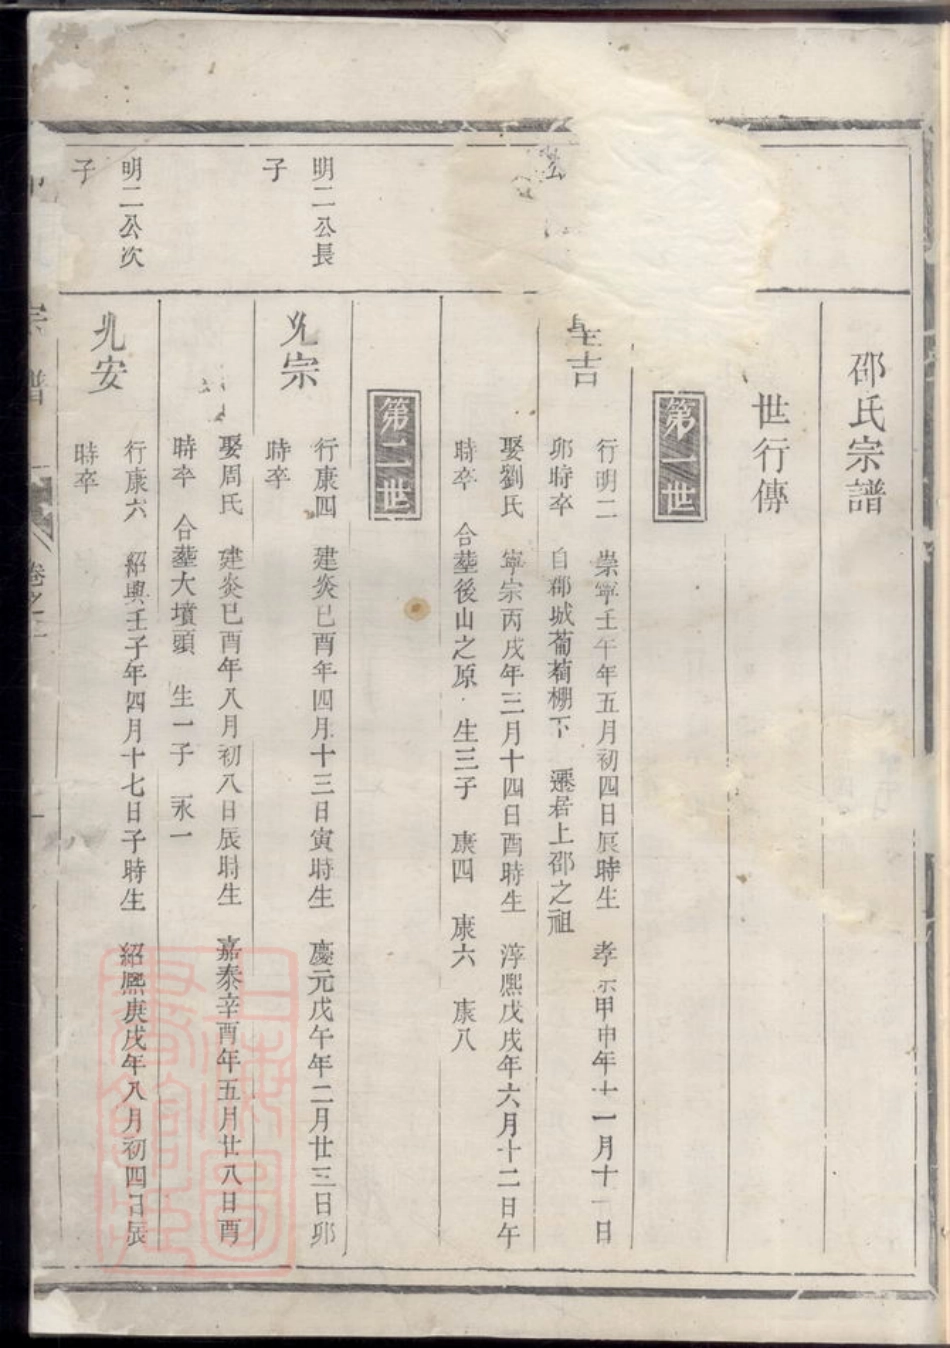 邵氏宗譜
世行傳
第一世
聖吉
行明二 崇寧壬午年五月初四日辰時生 孝宗甲申年十一月十一日
卯時卒 自郡城葡萄棚下 遷居上邵之祖
娶劉氏 寧宗丙戌年三月十四日酉時生 淳熙戊戌年六月十二日午
時卒 合塟後山之原 生三子 康四 康六 康八
第二世
明二公長
子
允宗
行康四 建炎已酉年四月十三日寅時生 慶元戊午年二月廿三日卯
時卒
娶周氏 建炎已酉年八月初八日辰時生 嘉泰辛酉年五月廿八日酉
時卒 合塟大墳頭 生一子 永一
明二公次
子
允安
行康六 紹興壬子年四月十七日子時生 紹熙庚戌年八月初四日辰
時卒
宗譜 卷之二